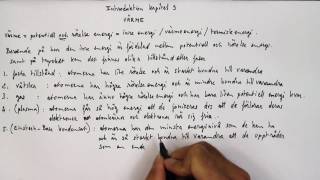 Introduktion kapitel 3
VÄRME
värme = potentiell och rörelse energi = inre energi / värmeenergi / termisk energi.
Beroende på hur den inre energin är fördelad mellan potentiell och rörelse energi.
samt på trycket kan det finnas olika tillstånd eller faser
1. fasta tillstånd : atomerna har lite rörelse energi och är starkt bundna till varandra
2. vätska : atomerna har mer rörelse energi och är mindre bundna till varandra
3. gas : atomerna har ännu högre rörelse energi och har bara liten potentiell energi kvar.
4. (plasma) : atomerna får så hög energi att de joniseras dvs att de förlorar deras
elektroner och atomkärna och elektronerna rör sig fria.
5. (Einstein-Bose kondensat) : atomerna har den minsta energinivå som de kan ha
och är så starkt bundna till varandra att de uppträder
som en enda